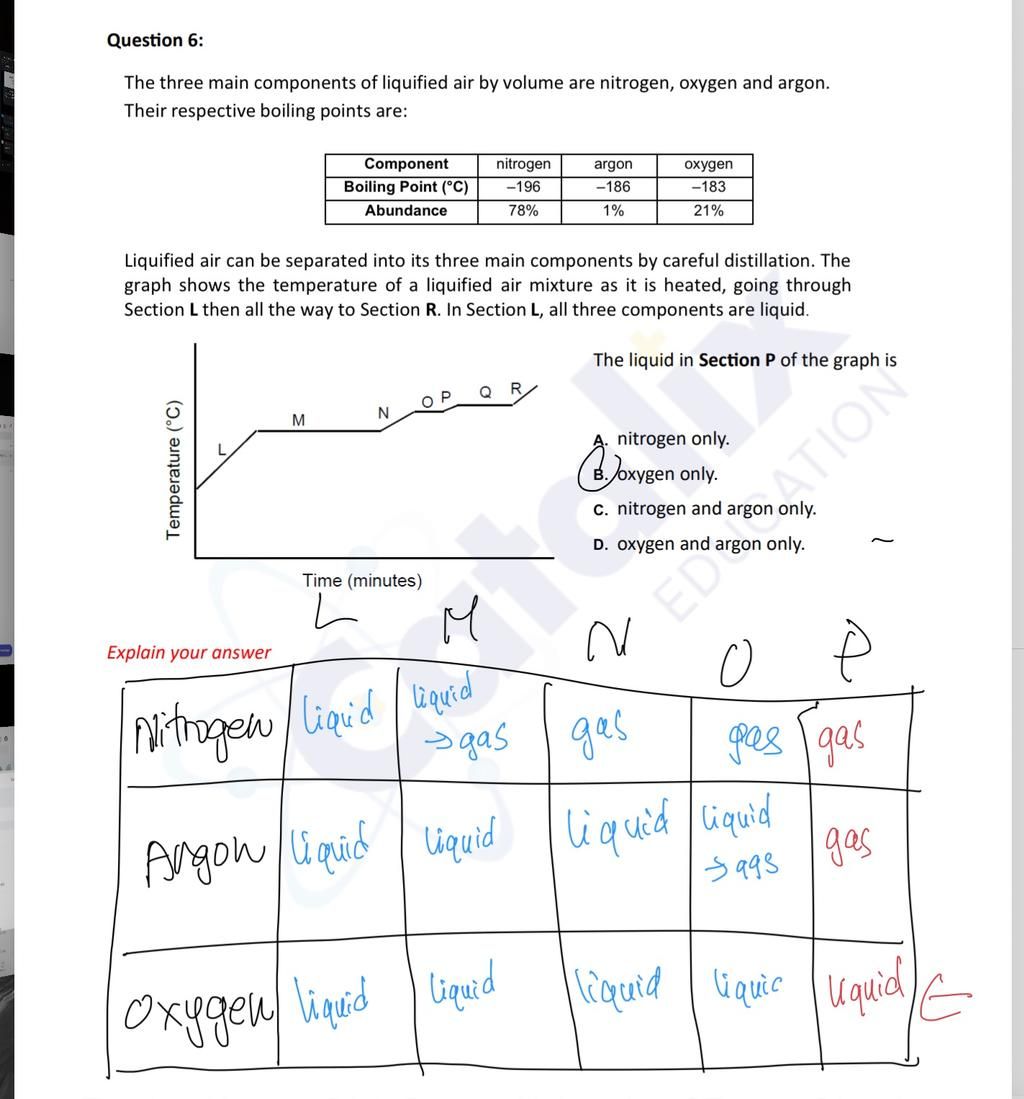 Question 6:
The three main components of liquified air by volume are nitrogen, oxygen and argon.
Their respective boiling points are:
Component nitrogen argon oxygen
Boiling Point (°C) −196 −186 −183
Abundance 78% 1% 21%
Liquified air can be separated into its three main components by careful distillation. The
graph shows the temperature of a liquified air mixture as it is heated, going through
Section L then all the way to Section R. In Section L, all three components are liquid.
Temperature (°C)
L M N O P Q R
Time (minutes)
The liquid in Section P of the graph is
A. nitrogen only.
B. oxygen only.
C. nitrogen and argon only.
D. oxygen and argon only.
Catalix
EDUCATION
Explain your answer
L M N O P
Nitrogen liquid liquid → gas gas gas gas
Argon liquid liquid liquid liquid → gas gas
Oxygen liquid liquid liquid liquid liquid ←